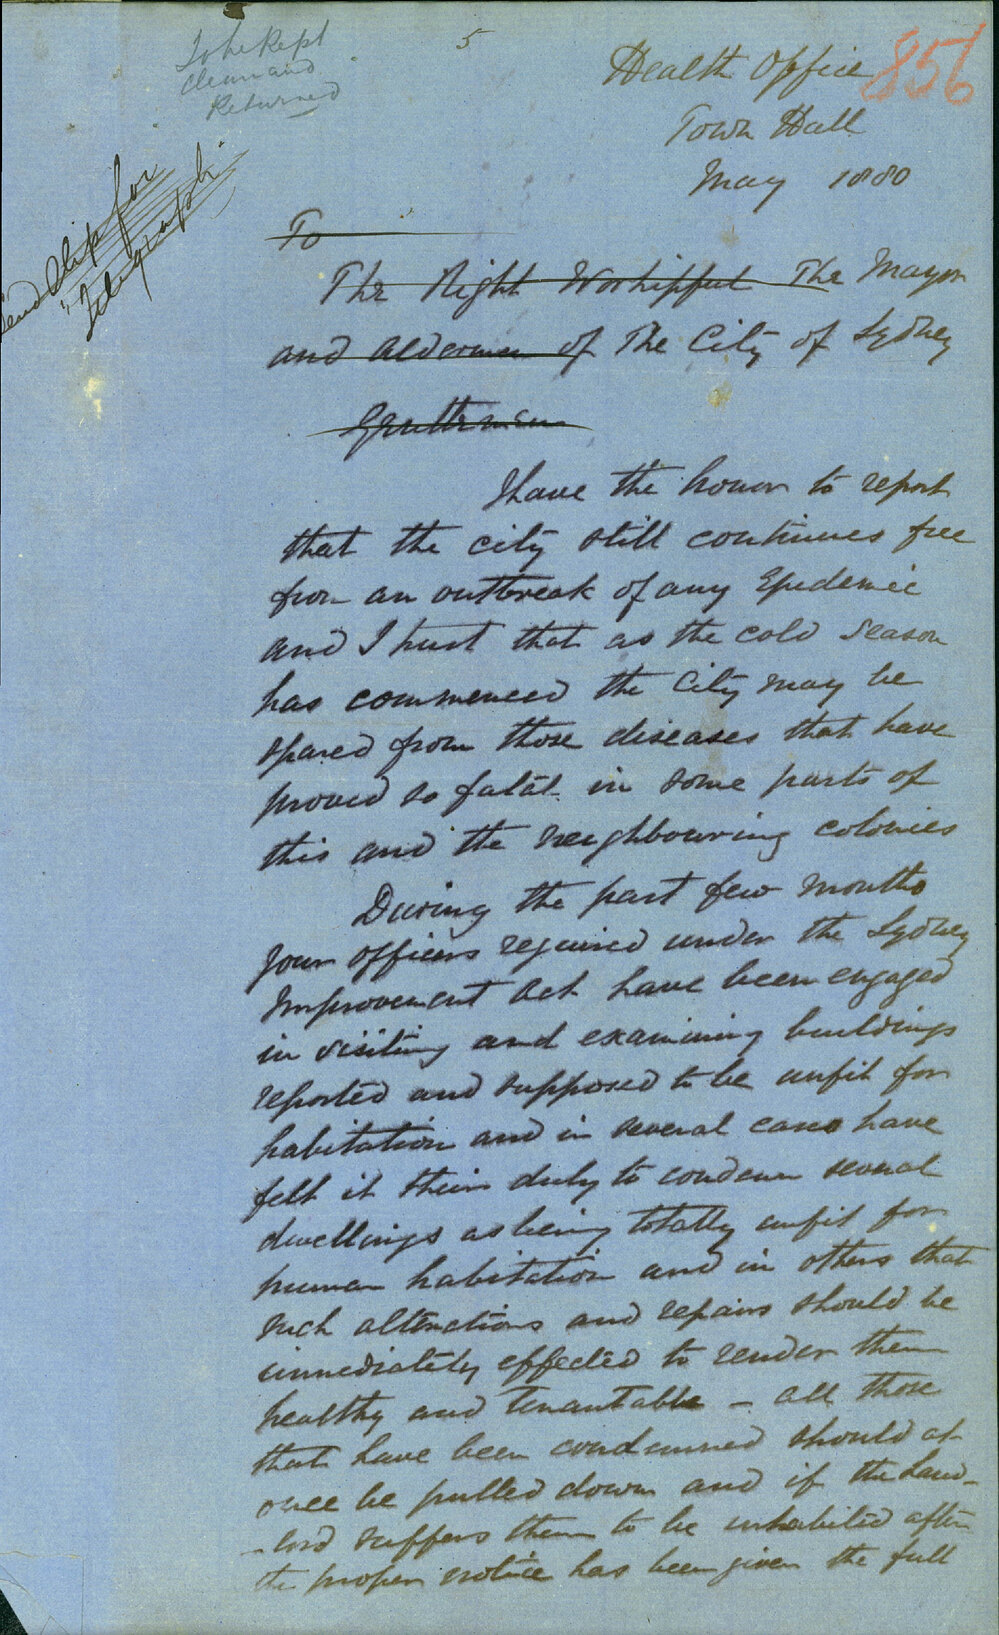 To be Kept
Clean and
Returned
5
856
Health Office
Town Hall
May 1880
Send Slip for
"Telegraph"
To
The Right Worshipful The Mayor
and Aldermen of The City of Sydney
Gentlemen
I have the honor to report
that the city still continues free
from an outbreak of any Epidemic
and I trust that as the cold season
has commenced the City may be
spared from those diseases that have
proved so fatal in some parts of
this and the neighbouring colonies
During the past few months
your officers required under the Sydney
Improvement Act have been engaged
in visiting and examining buildings
reported and supposed to be unfit for
habitation and in several cases have
felt it their duty to condemn several
dwellings as being totally unfit for
human habitation and in others that
such alterations and repairs should be
immediately effected to render them
healthy and tenantable - all those
that have been condemned should at
once be pulled down and if the land-
-lord suffers them to be inhabited after
the proper notice has been given the full